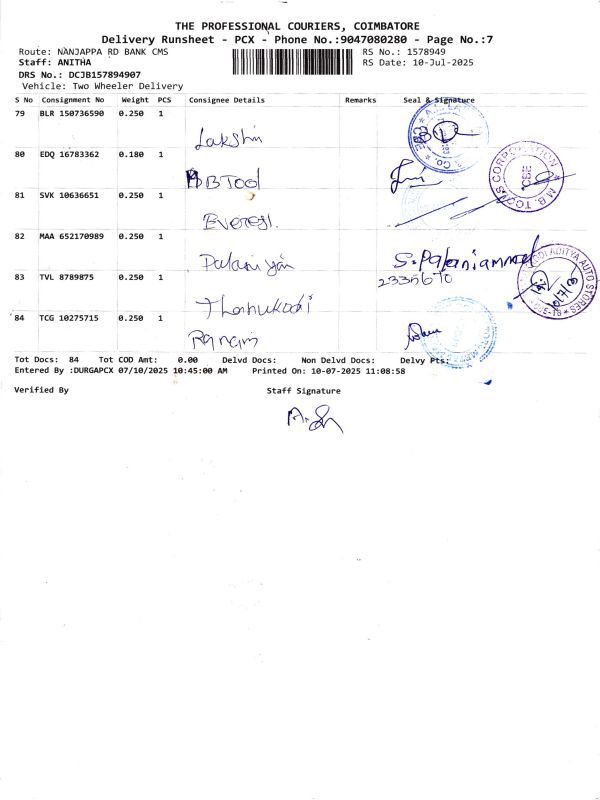 THE PROFESSIONAL COURIERS, COIMBATORE
Delivery Runsheet - PCX - Phone No.:9047080280 - Page No.:7
Route: NANJAPPA RD BANK CMS
RS No.: 1578949
Staff: ANITHA
RS Date: 10-Jul-2025
DRS No.: DCJB157894907
Vehicle: Two Wheeler Delivery
S No Consignment No Weight PCS Consignee Details Remarks Seal & Signature
79 BLR 150736590 0.250 1
Lakshmi
80 EDQ 16783362 0.180 1
B Tool
M.B. TOOLS CORPORATION
CBE
81 SVK 10636651 0.250 1
Everest.
82 MAA 652170989 0.250 1
Palaniyan
S. Palaniammal
83 TVL 8789875 0.250 1
2335670
ADITYA AUTO STORES
10/7/
84 TCG 10275715 0.250 1
Tot Docs: 84 Tot COD Amt: 0.00 Delvd Docs: Non Delvd Docs: Delvy Pts:
Entered By :DURGAPCX 07/10/2025 10:45:00 AM Printed On: 10-07-2025 11:08:58
Verified By Staff Signature